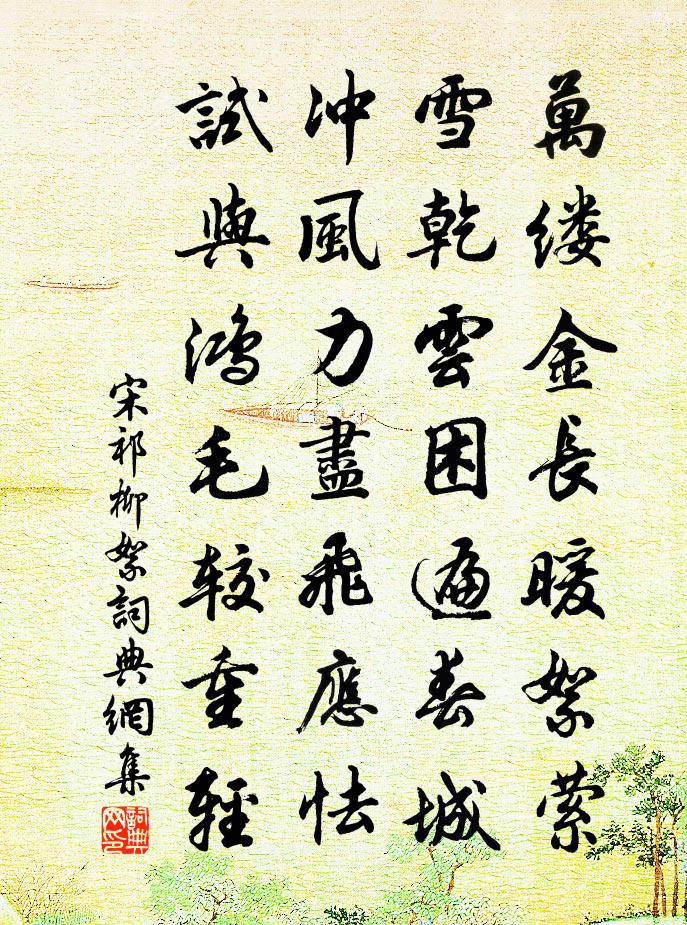 萬缕金長暖絮萦
雪乾雲困遍春城
冲風力盡飛應怯
試與鴻毛较重輕
宋祁柳絮詞典網集
詞典网印